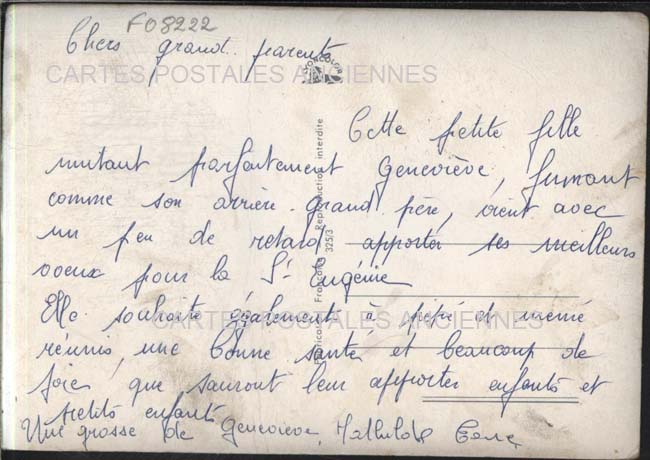 F08222
Chers grand-parents
CARTES POSTALES ANCIENNES
Cette petite fille
imitant parfaitement Geneviève, fumant
comme son arrière-grand père, vient avec
un peu de retard apporter ses meilleurs
voeux pour la St Eugénie
Elle souhaite également à pépé et mémé
CARTES POSTALES ANCIENNES
réunis, une bonne santé et beaucoup de
joie, que sauront leur apporter enfants et
petits enfants
Une grosse de Geneviève, Mathilde
Reproduction interdite
325/3